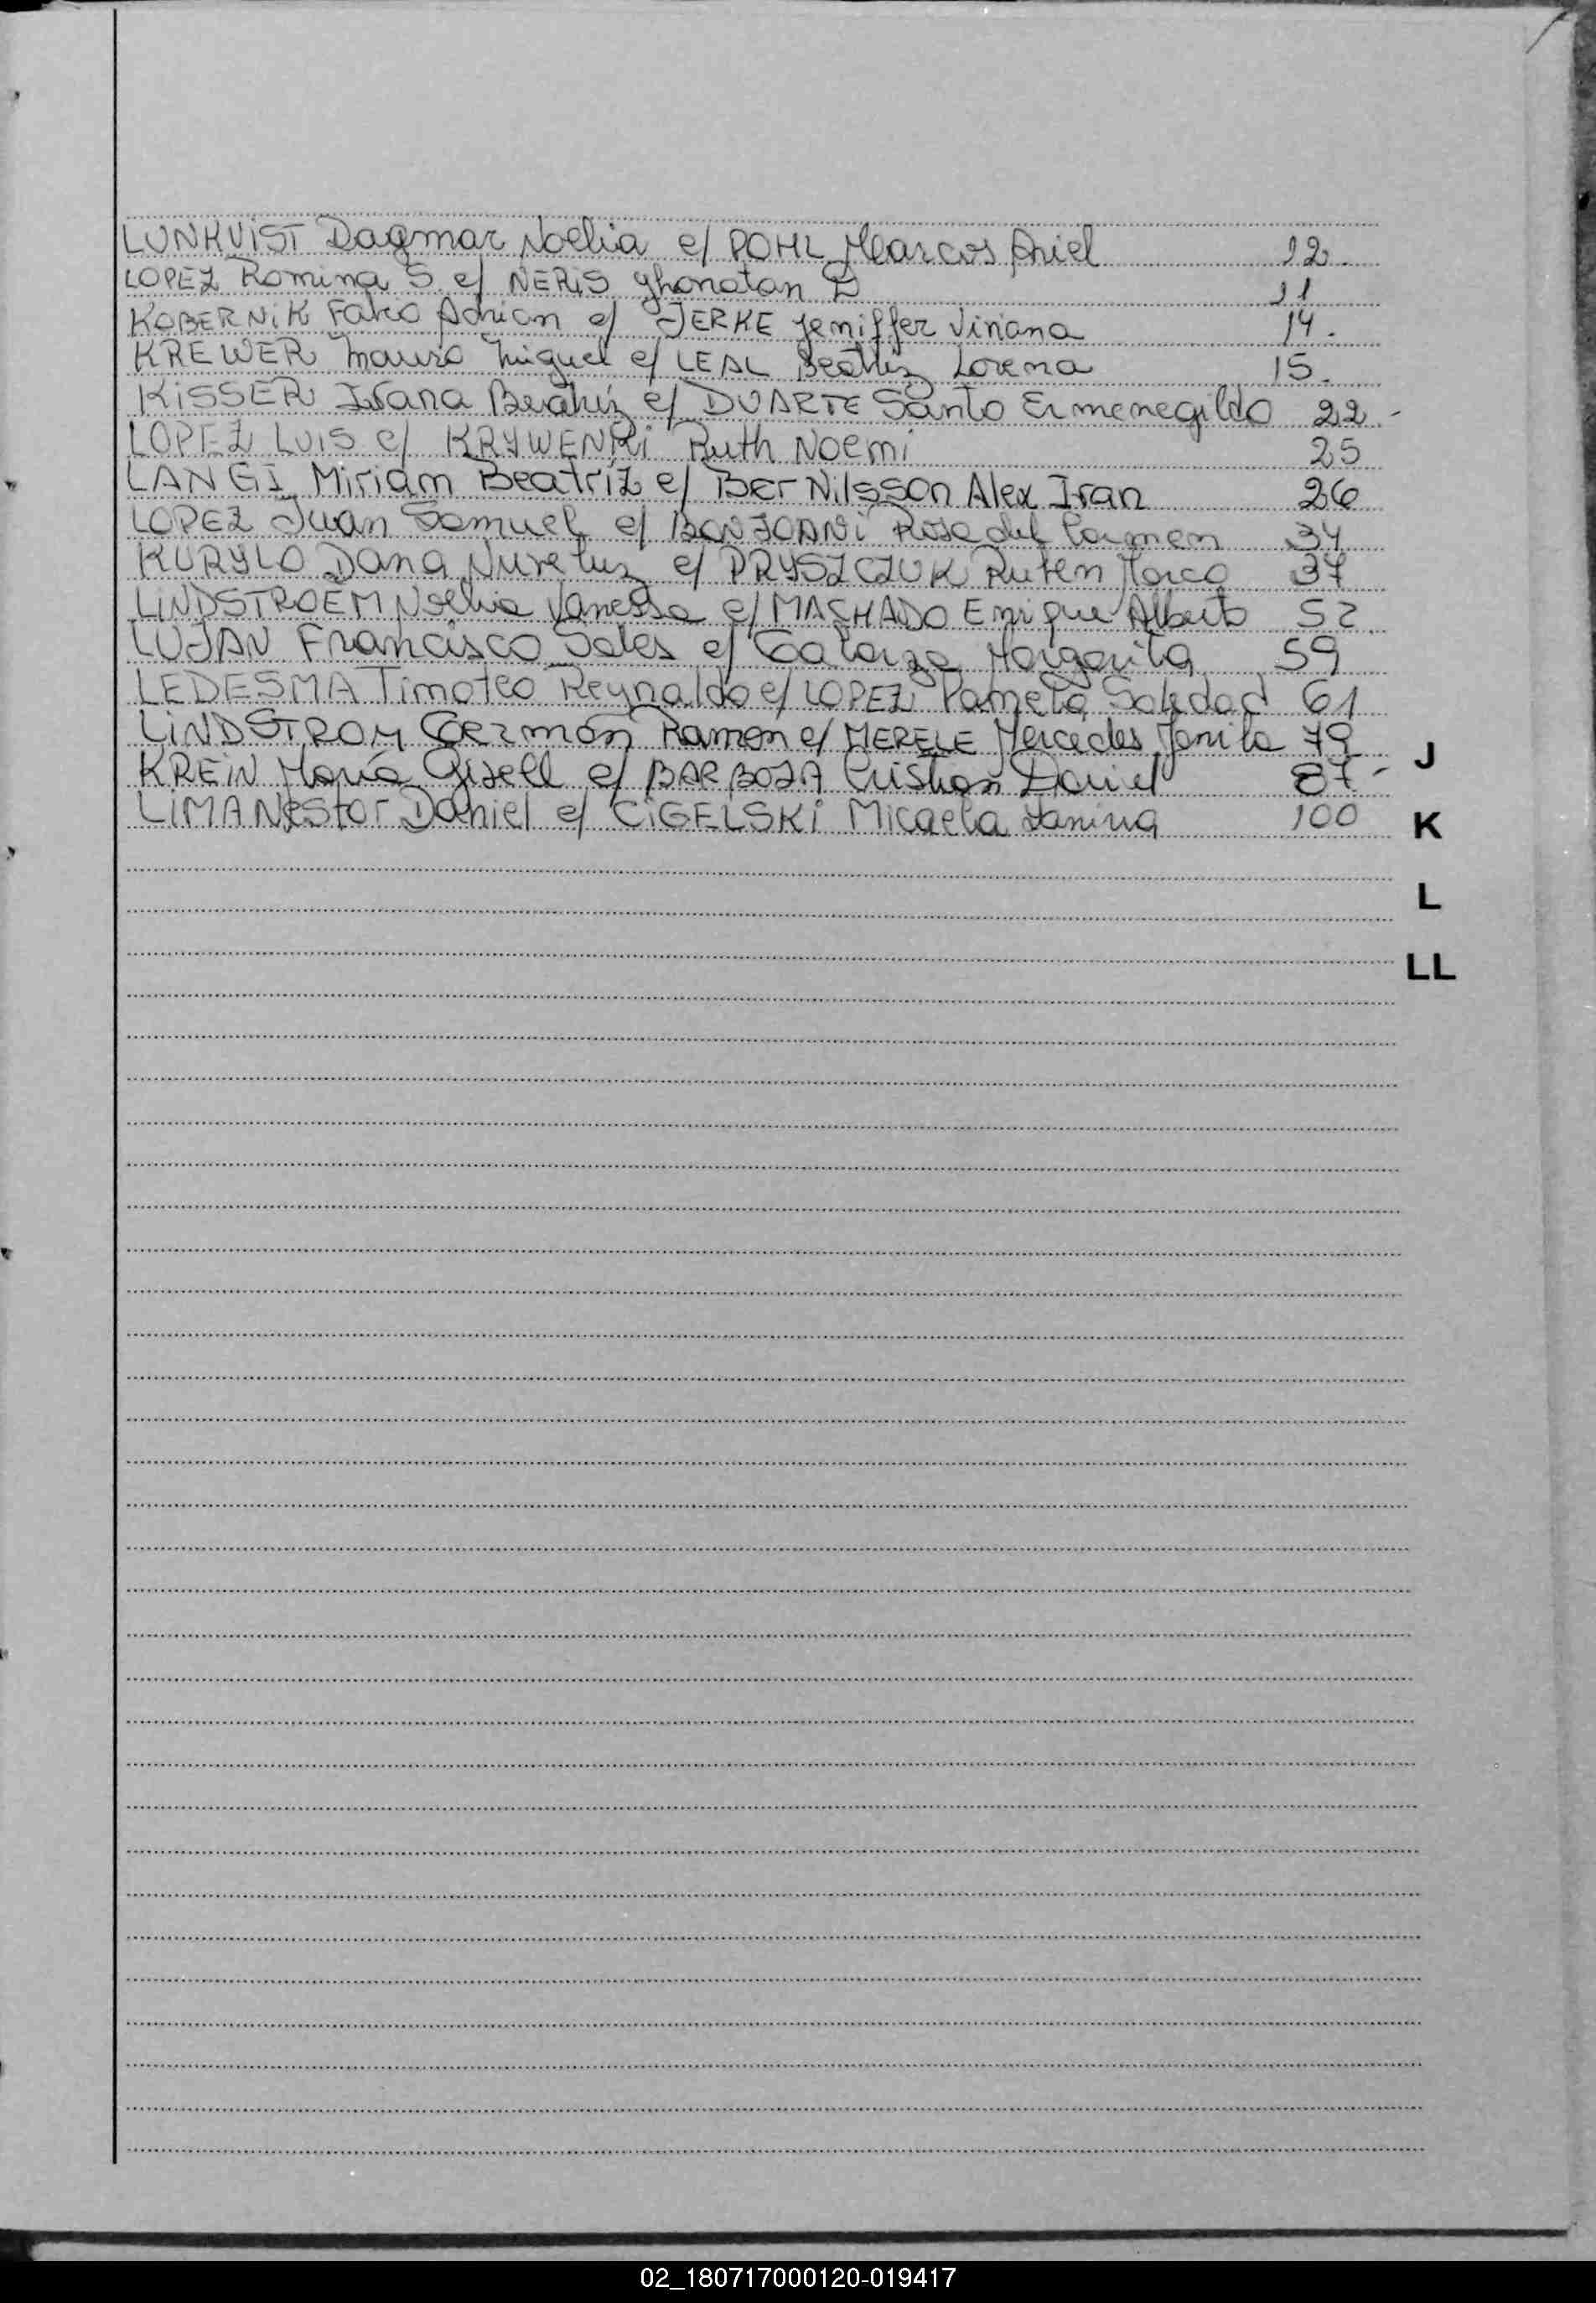 LUNKVIST Dagmar Noelia c/ POHL Marcos Ariel 12.
LOPEZ Romina S. c/ NERIS Jhonatan D 11
KOBERNIK Fabio Adrian c/ JERKE Jeniffer Viviana 14.
KREWER Mauro Miguel c/ LEAL Beatriz Lorena 15.
KISSER Ivana Beatriz c/ DUARTE Santo Ermenegildo 22.-
LOPEZ LUIS c/ KRYWENKI Ruth Noemi 25
LANGI Miriam Beatríz c/ BER Nilsson Alex Ivan 26
LOPEZ Juan Samuel c/ BONJOANI Rosa del Carmen 34
KURYLO Dana c/ PRYSZCZUK Ruben Marco 37
LINDSTROEM Noelia Vanessa c/ MACHADO Enrique Alberto 52
LUJAN Francisco Sales c/ Galarza Margarita 59
LEDESMA Timoteo Reynaldo c/ LOPEZ Pamela Soledad 61
LINDSTROM Germán Ramon c/ MERELE Mercedes 79
KREIN María Gisell c/ BARBOZA Cristian Daniel 87-
LIMA Nestor Daniel c/ CIGELSKI Micaela Yanina 100
J
K
L
LL
02_180717000120-019417